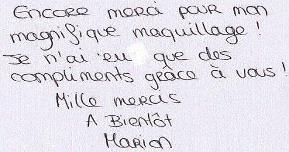 Encore merci pour mon
magnifique maquillage !
Je n'ai eu que des
compliments grâce à vous !
Mille mercis
A Bientôt
Marion